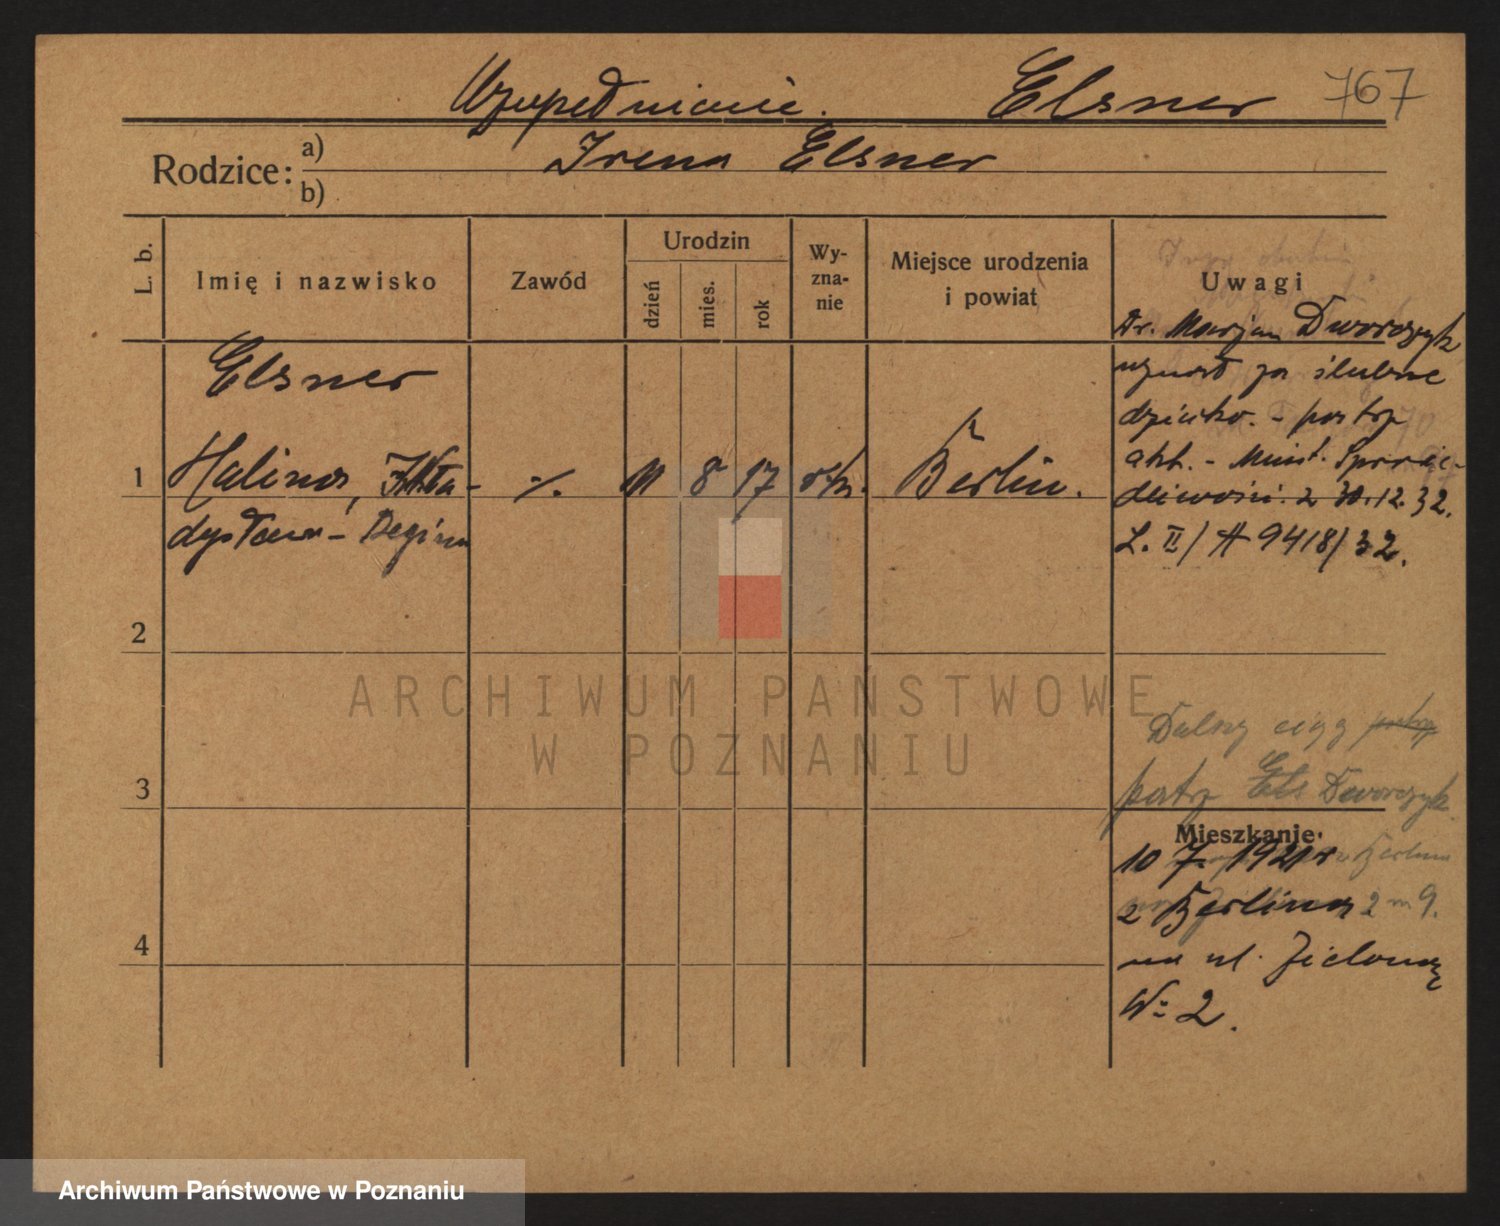 Uzupełnienie. Elsner 767
Rodzice: a) Irena Elsner
b)
L. b.
Imię i nazwisko
Zawód
Urodzin
dzień
mies.
rok
Wy-
zna-
nie
Miejsce urodzenia
i powiat
Uwagi
Elsner
1 Halina, Wła-
dysława - Regina
-/.
11 8 17 rk.
Berlin.
Dr. Marjan Dworczyk
uznał za ślubne
dziecko. - patrz
akt. - Minist. Sprawie-
dliwości. z 30.12.32.
L. II/A 9418/32.
2
3
4
Dalszy ciąg patrz
patrz Els Dworczyk
Mieszkanie·
10 7. 1921 r
z Berlina 2 m 9.
na ul. Zieloną
№ 2.
ARCHIWUM PAŃSTWOWE
W POZNANIU
Archiwum Państwowe w Poznaniu